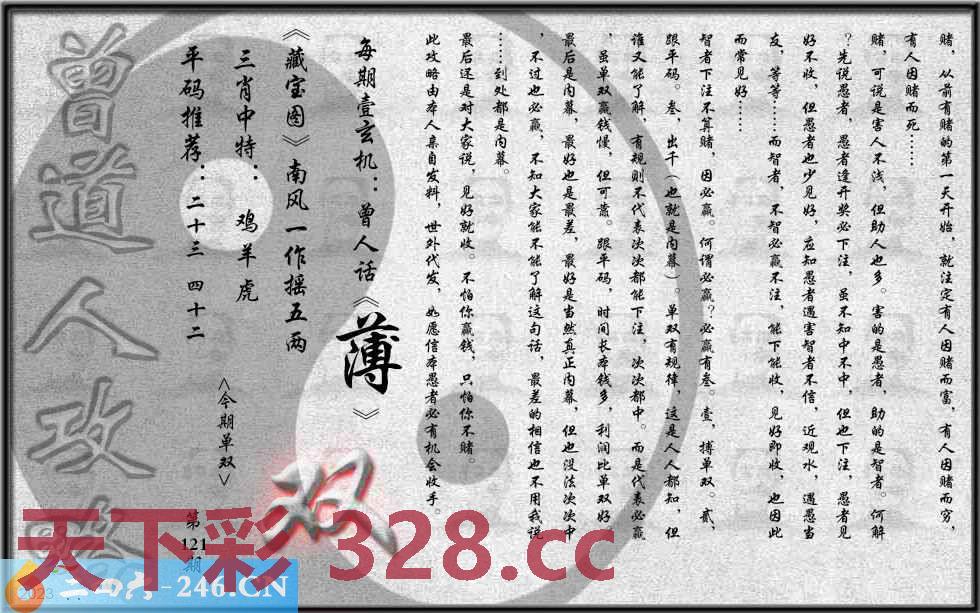 赌，从前有赌的第一天开始，就注定有人因赌而富，有人因赌而穷，
有人因赌而死……
赌，可说是害人不浅，但助人也多。害的是愚者，助的是智者。何解
？先说愚者，愚者逢开奖必下注，虽不知中不中，但也下注，愚者见
好不收，但愚者也少见好，应知愚者遇害智者不信，近观水，遇愚当
友，等等……而智者，不智必赢不注，能下能收，见好即收，也因此
而常见好……
智者下注不算赌，因必赢。何谓必赢？必赢有叁。壹，搏单双。贰，
跟平码。叁，出千（也就是内幕）。单双有规律，这是人人都知，但
谁又能了解，有规则不代表次次都能下注，次次都中。而是代表必赢
，虽单双赢钱慢，但可靠。跟平码，时间长本钱多，利润比单双好。
最后是内幕，最好也是最差，最好是当然真正内幕，但也没法次次中
，不过也必赢，不知大家能不能了解这句话，最差的相信也不用我说
……到处都是内幕。
最后还是对大家说，见好就收。不怕你赢钱，只怕你不赌。
此攻略由本人亲自发料，世外代发，如愿信本愚者必有机会收手。
每期壹玄机：曾人话《薄》
《藏宝图》南风一作摇五两
三肖中特：鸡羊虎
平码推荐：二十三 四十二
<今期单双>
双
第121期
曾道人攻略
天下彩 328.cc
二四六-246.CN
2023